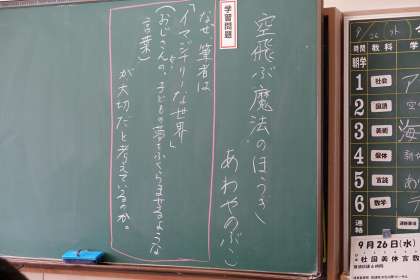 空飛ぶ魔法のほうき
あわやのぶこ
学習問題
なぜ、筆者は
「イマジナリーな世界」
(おじさんの、子どもの夢をふくらませるような
言葉)
が大切だと考えているのか。
時間
教科
学習
朝学
1
社会
2
国語
3
美術
4
保体
5
言語
6
数学
連絡
9月26日(水)
社国美体言数